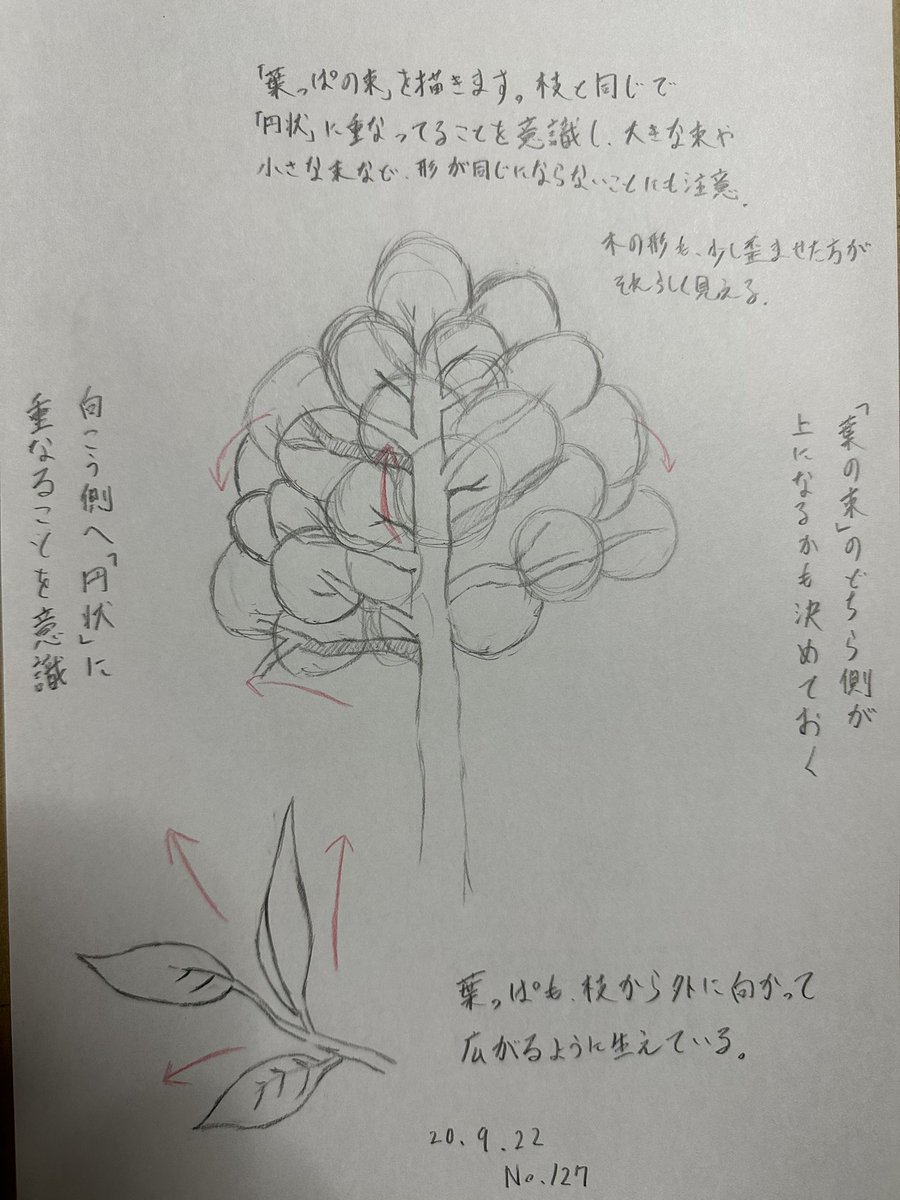 「葉っぱの束」を描きます。枝と同じで
「円状」に重なってることを意識し、大きな束や
小さな束など、形が同じにならないことにも注意.
木の形も、少し歪ませた方が
それらしく見える.
「葉の束」のどちら側が
上になるかも決めておく
向こう側へ「円状」に
重なることを意識
葉っぱも、枝から外に向かって
広がるように生えている。
20.9.22
No.127